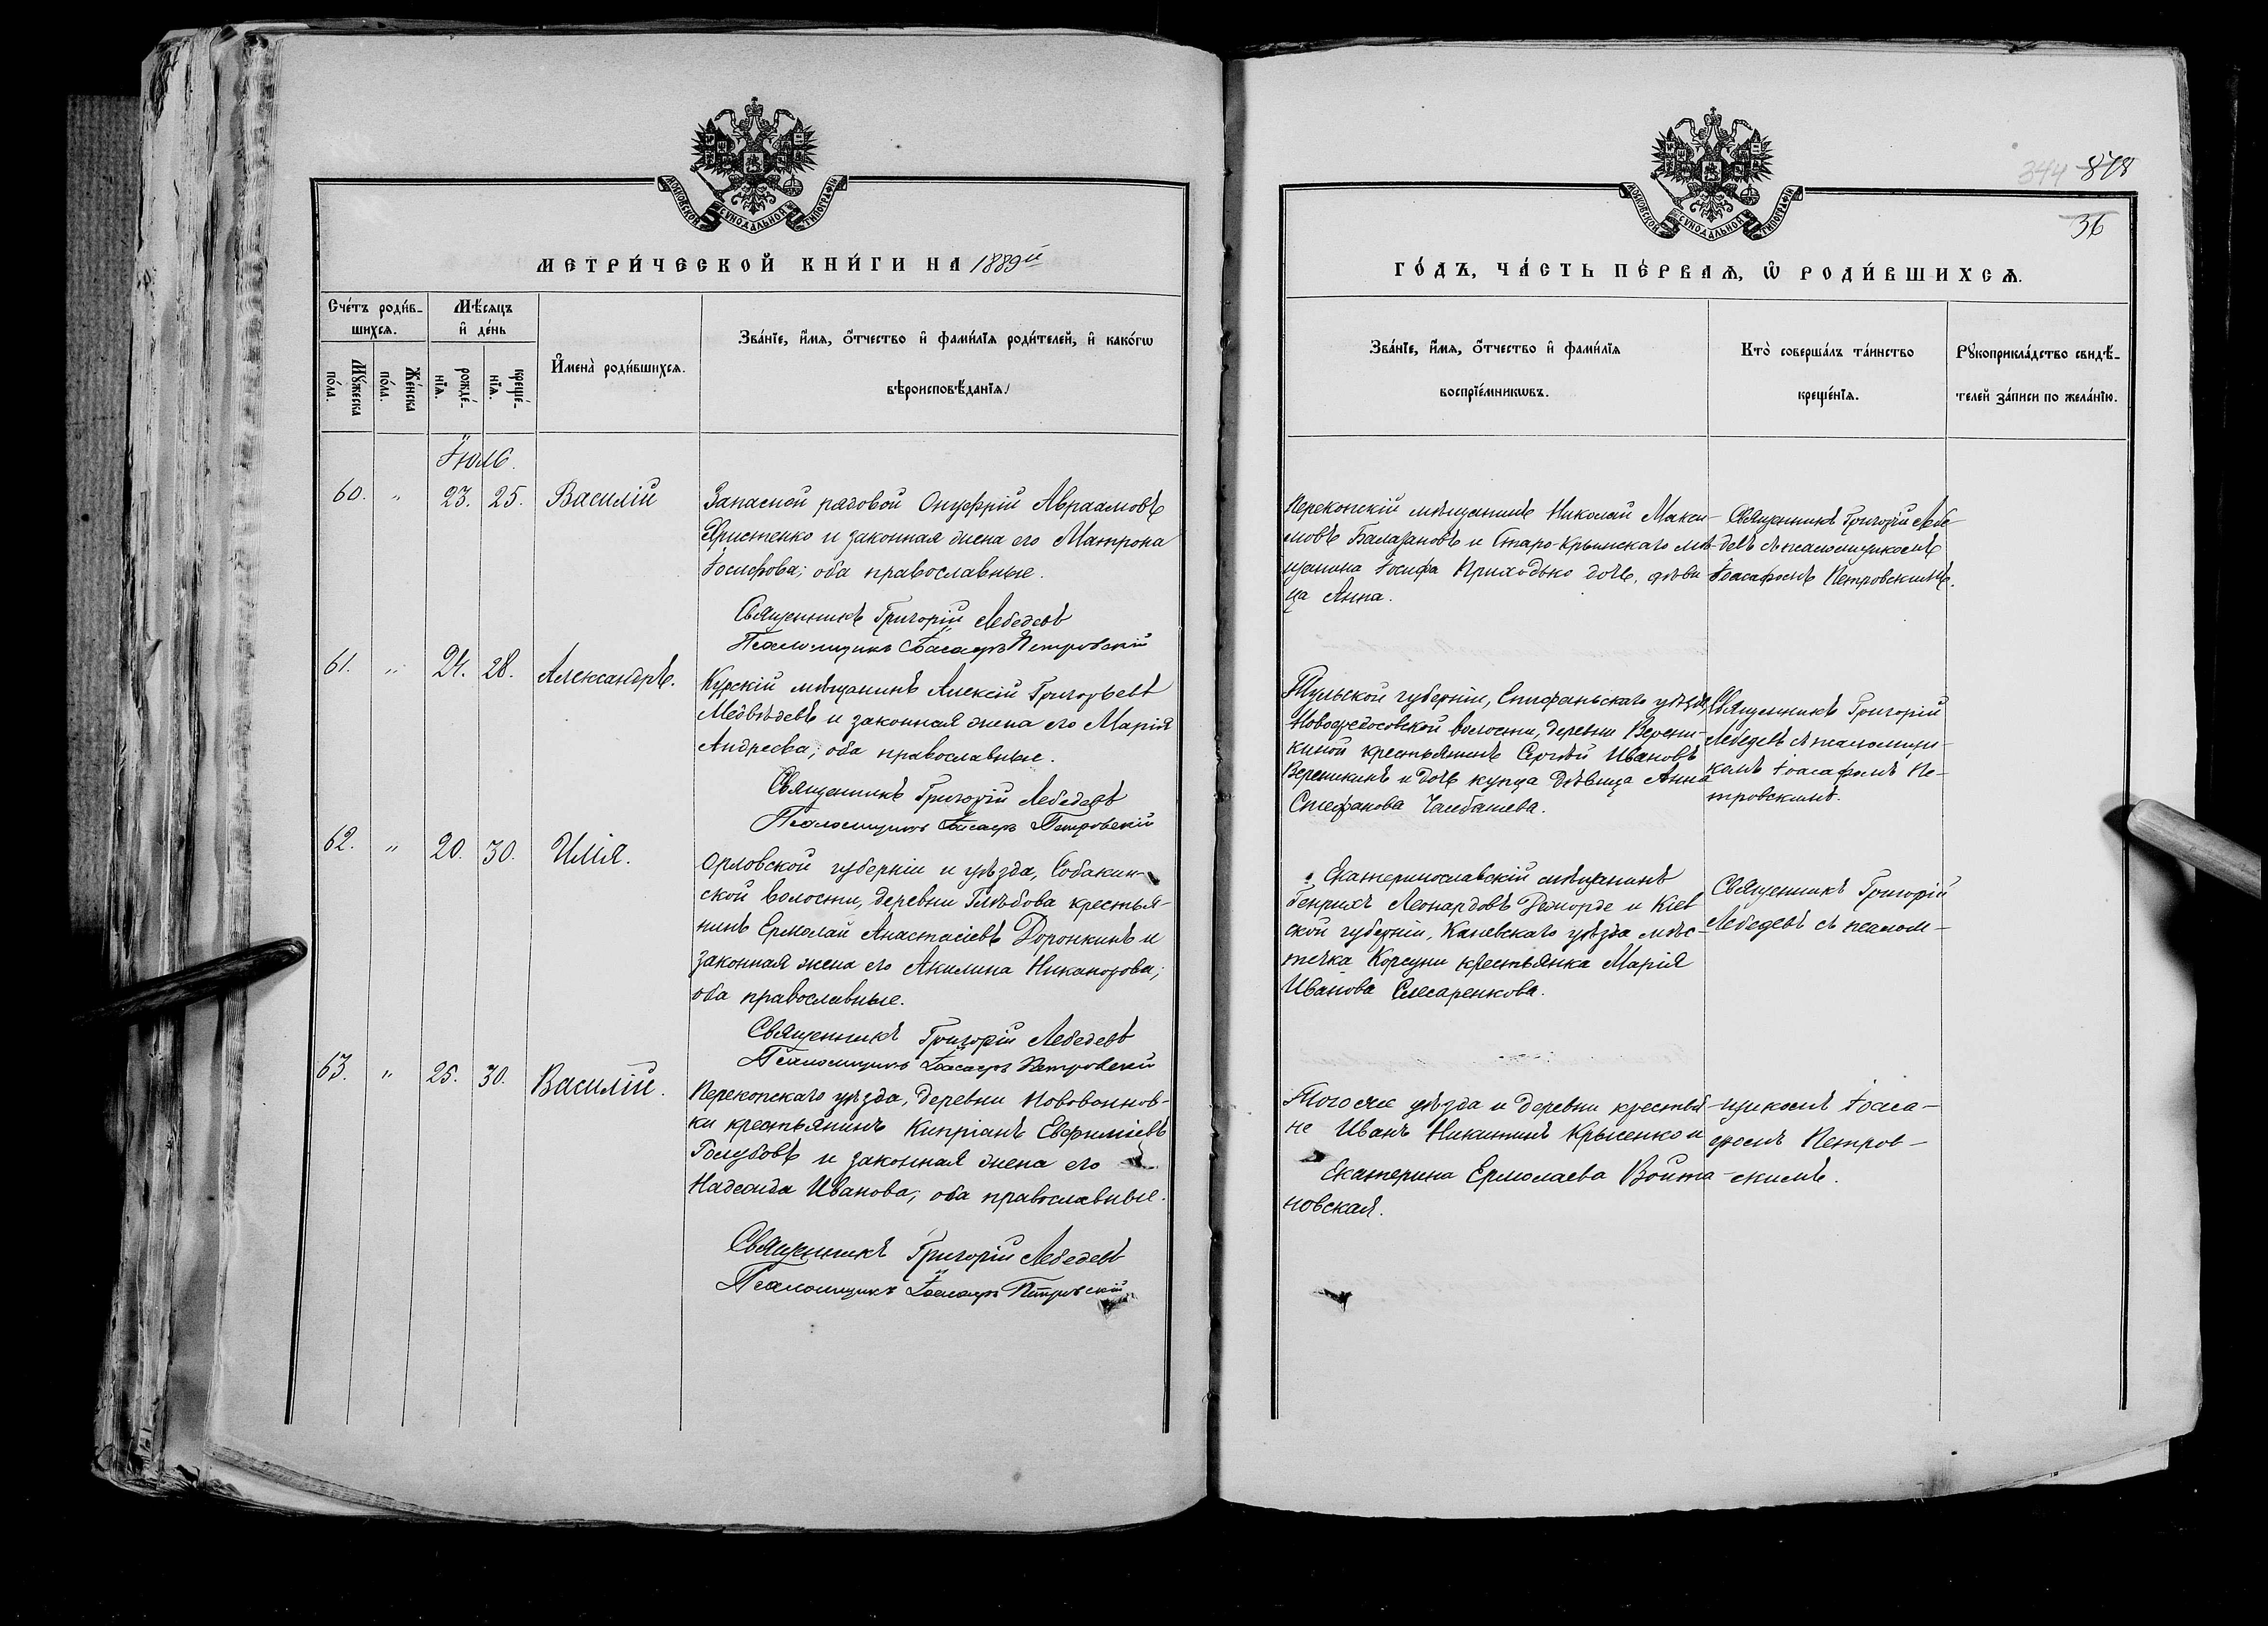 МОСКОВСКОЙ СУНОДАЛЬНОЙ ТИПОГРАФІИ
МЕТРИ́ЧЕСКОЙ КНИ́ГИ НА 1889й
Сче́тъ роди́в-
шихся.
Мѣ́сяцъ
и҆ де́нь
Мꙋ́жеска
по́ла.
Же́нска
по́ла.
рожде́-
нїя.
креще́-
нїя.
И҆мена̀ роди́вшихся.
Зва́нїе, и҆́мя, ѻ҆́тчество и҆ фами́лїя роди́телей, и҆ како́гѡ
вѣроисповѣ́данїя
Іюль.
60. " 23. 25. Василій
Запасной рядовой Онуфрій Авраамовъ
Христенко и законная жена его Матрона
Іосифова; оба православные.
Священникъ Григорій Лебедевъ
Псаломщикъ Іоасафъ Петровскій
61. " 24. 28. Александръ.
Курскій мѣщанинъ Алексій Григорьевъ
Медвѣдевъ и законная жена его Марія
Андреева; оба православные.
Священникъ Григорій Лебедевъ
Псаломщикъ Іоасафъ Петровскій
62. " 20. 30. Илія.
Орловской губерніи и уѣзда, Собакин-
ской волости, деревни Глѣбова крестья-
нинъ Ермолай Анастасіевъ Доронкинъ и
законная жена его Акилина Никанорова;
оба православные.
Священникъ Григорій Лебедевъ
Псаломщикъ Іоасафъ Петровскій
63. " 25. 30. Василій.
Перекопскаго уѣзда, деревни Нововоинов-
ки крестьянинъ Кипріанъ Евфиміевъ
Голубовъ и законная жена его
Надежда Иванова; оба православные.
Священникъ Григорій Лебедевъ
Псаломщикъ Іоасафъ Петровскій
МОСКОВСКОЙ СУНОДАЛЬНОЙ ТИПОГРАФІИ
344
36
ГО́ДЪ, ЧА́СТЬ ПЕ́РВАѦ, Ѡ҆ РОДИ́ВШИХСѦ.
Зва́нїе, и҆́мя, ѻ҆́тчество и҆ фами́лїя
воспрїе́мникѡвъ.
Кто̀ соверша́лъ та́инство
креще́нїя.
Рꙋкоприкла́дство свидѣ́-
телей за́писи по жела́нїю.
Перекопскій мѣщанинъ Николай Макси-
мовъ Балагановъ и Старо-Крымскаго мѣ-
щанина Іосифа Приходько дочь, дѣви-
ца Анна.
Священникъ Григорій Лебе-
девъ съ псаломщикомъ
Іоасафомъ Петровскимъ.
Тульской губерніи, Епифаньскаго уѣзда,
Новофедосовской волости, деревни Верени-
киной крестьянинъ Сергѣй Ивановъ
Вереникинъ и дочь купца дѣвица Анна
Стефанова Чалбашева.
Священникъ Григорій
Лебедевъ съ псаломщи-
комъ Іоасафомъ Пе-
тровскимъ.
Екатеринославскій мѣщанинъ
Генрихъ Леонардовъ и Кіев
ской губерніи, Каневскаго уѣзда мѣс-
течка Корсуни крестьянка Марія
Иванова Слесаренкова.
Священникъ Григорій
Лебедевъ съ псалом-
Того же уѣзда и деревни крестья-
не Иванъ Никитинъ Крысенко и
Екатерина Ермолаева Война-
новская.
щикомъ Іоаса-
фомъ Петров-
скимъ.